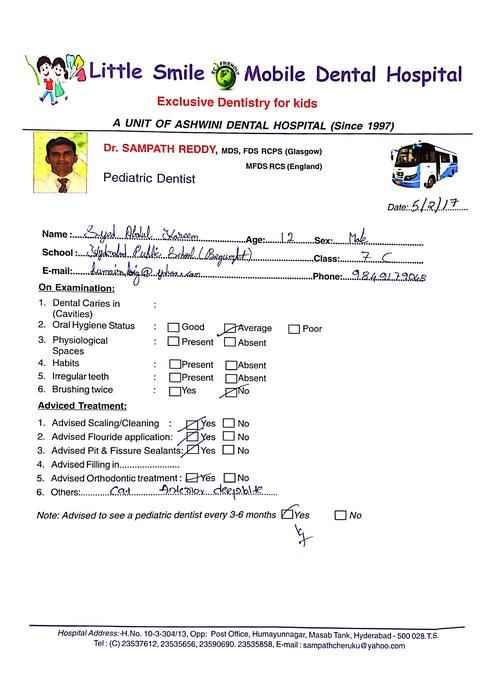 Little Smile Mobile Dental Hospital
Exclusive Dentistry for kids
A UNIT OF ASHWINI DENTAL HOSPITAL (Since 1997)
Dr. SAMPATH REDDY, MDS, FDS RCPS (Glasgow)
MFDS RCS (England)
Pediatric Dentist
Date: 5/2/17
Name : Syed Abdul Kareem Age: 12 Sex: Male
School : Hyderabad Public School (Begumpet) Class: 7 C
E-mail: @yahoo.com Phone: 9849179048
On Examination:
1. Dental Caries in :
(Cavities)
2. Oral Hygiene Status : Good Average Poor
3. Physiological : Present Absent
Spaces
4. Habits : Present Absent
5. Irregular teeth : Present Absent
6. Brushing twice : Yes No
Adviced Treatment:
1. Advised Scaling/Cleaning : Yes No
2. Advised Flouride application: Yes No
3. Advised Pit & Fissure Sealants: Yes No
4. Advised Filling in......................
5. Advised Orthodontic treatment : Yes No
6. Others: Anterior deepbite
Note: Advised to see a pediatric dentist every 3-6 months Yes No
Hospital Address:-H.No. 10-3-304/13, Opp: Post Office, Humayunnagar, Masab Tank, Hyderabad - 500 028.T.S.
Tel : (C) 23537612, 23535656, 23590690. 23535858, E-mail : sampathcheruku@yahoo.com